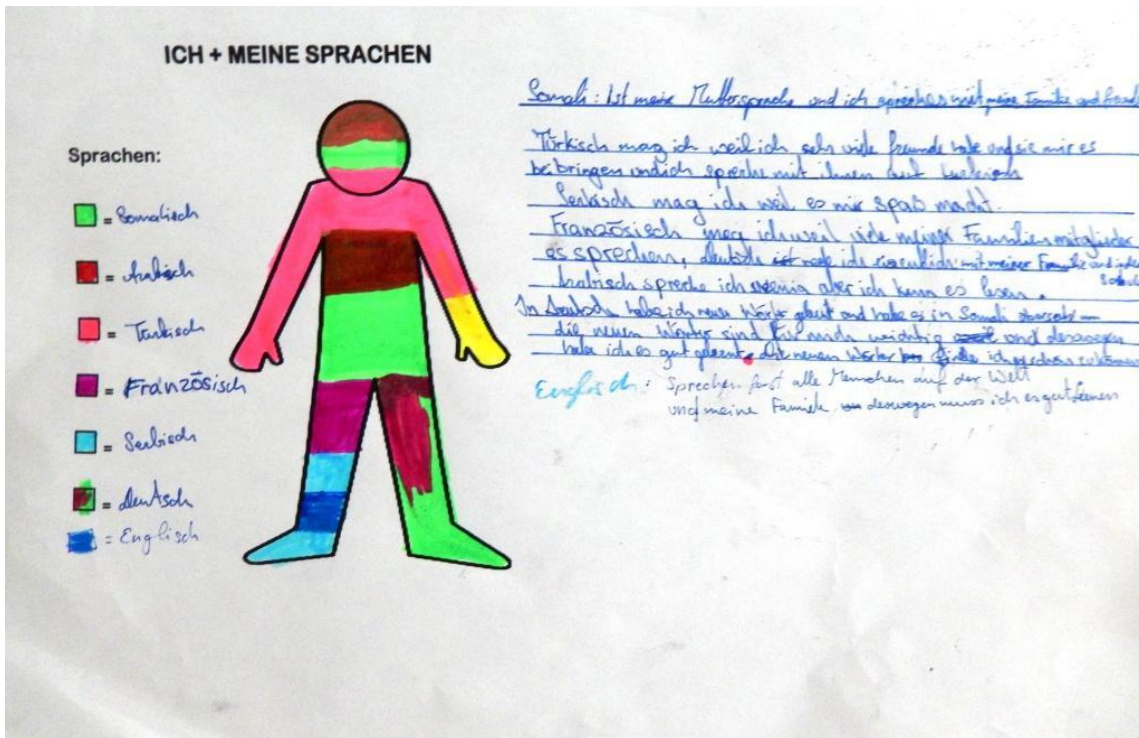 ICH + MEINE SPRACHEN
Sprachen:
= Somalisch
= Arabisch
= Türkisch
= Französisch
= Serbisch
= deutsch
= Englisch
Somali: Ist meine Muttersprache und ich spreche es mit meine Familie und freunde
Türkisch mag ich weil ich sehr viele freunde habe und sie mir es
beibringen und ich spreche mit ihnen auf
Serbisch mag ich weil es mir spaß macht.
Französisch mag ich weil viele meiner Familienmitglieder
es sprechen, deutsch rede ich mit meiner Familie und in der
Schule
Arabisch spreche ich wenig aber ich kann es lesen.
In deutsch habe ich neue Wörter gelernt und habe es in Somali
die neuen Wörter sind für mich wichtig und deswegen
habe ich es gut gelernt. die neuen Wörter finde ich schon zu können
Englisch: Sprechen fast alle Menschen auf der Welt
und meine Familie deswegen muss ich es gut lernen